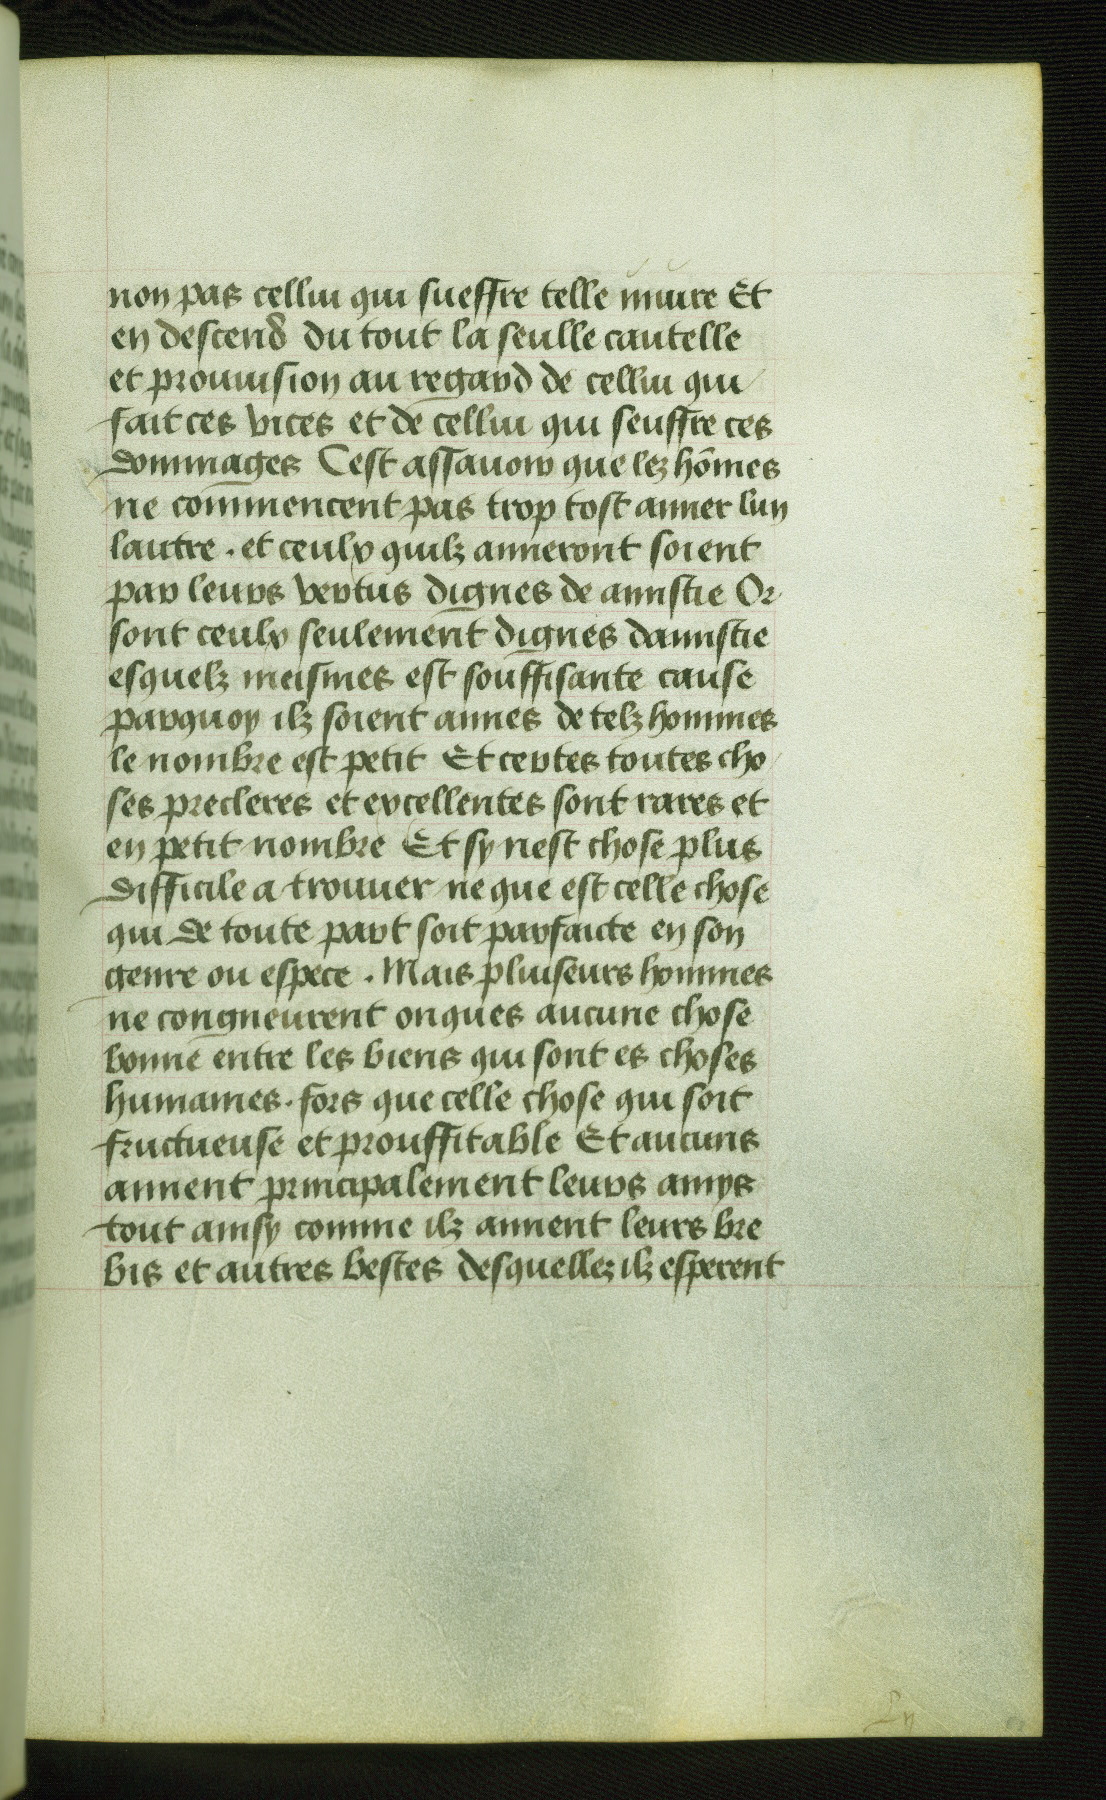 non pas cellui qui sueffre telle iniure Et
en descend du tout la seulle cautelle
et prouuision au regard de cellui qui
fait ces vices et de cellui qui seuffre ces
dommages Cest assauoir que lez hōmes
ne commencent pas trop tost aimer lun
lautre . et ceulx quilz aimeront soient
par leurs vertus dignes de amistie Or
sont ceulx seulement dignes damistie
esquelz meismes est souffisante cause
parquoy ilz soient aimes de telz hommes
le nombre est petit Et certes toutes cho
ses precleres et excellentes sont rares et
en petit nombre Et sy nest chose plus
difficile a trouuer ne que est celle chose
qui de toute part soit parfaicte en son
genre ou espece . Mais pluiseurs hommes
ne congneurent onques aucune chose
bonne entre les biens qui sont es choses
humaines . fors que celle chose qui soit
fructueuse et prouffitable Et aucuns
aiment principalement leurs amys
tout ainsy comme ilz aiment leurs bre
bis et autres bestes desquellez ilz esperent